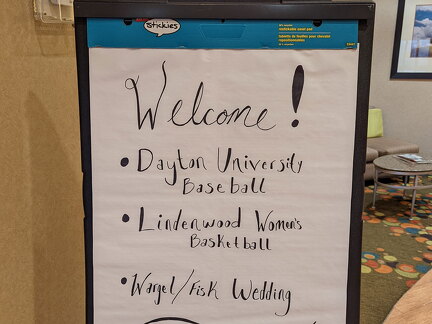 stickies
Welcome!
• Dayton University
Baseball
• Lindenwood Women's
Basketball
• Wargel/Fisk Wedding